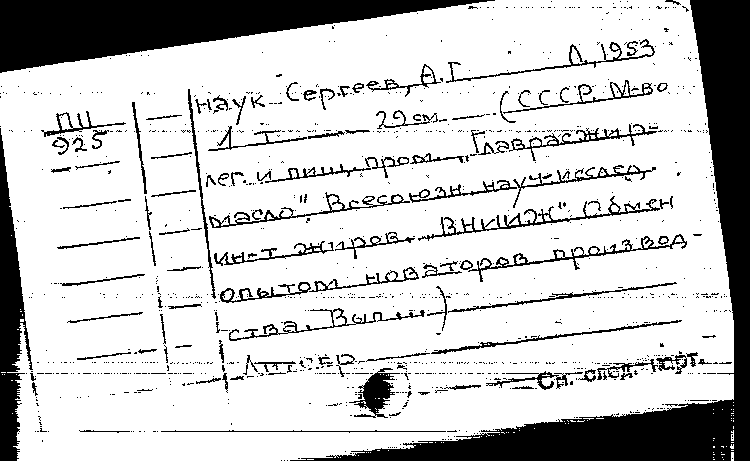 ПII
925
наук Сергеев, А.Г. Л., 1953
1 т 29 см (СССР. М-во
лег. и пищ. пром. „Главрасжир-
масло". Всесоюзн. науч-исслед.
ин-т жиров. „ВНИИЖ". Обмен
опытом новаторов производ-
ства. Вып...)
Литогр
См. след. карт.